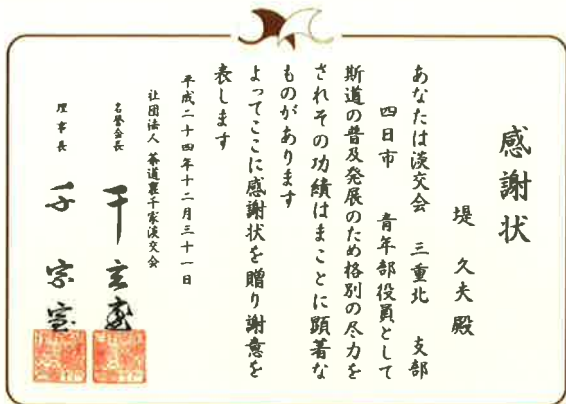 感謝状
堤 久夫殿
あなたは淡交会 三重北 支部
四日市 青年部役員として
斯道の普及発展のため格別の尽力を
されその功績はまことに顕著な
ものがあります
よってここに感謝状を贈り謝意を
表します
平成二十四年十二月三十一日
社団法人 茶道裏千家淡交会
名誉会長 千玄室
理事長 千宗室